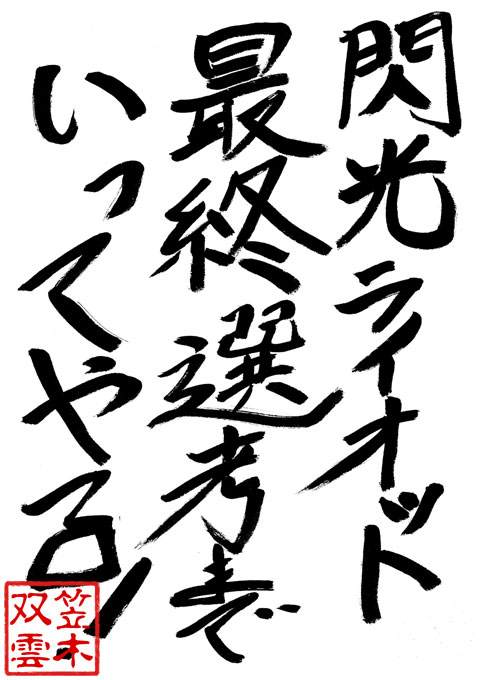 閃光ライオット
最終選考まで
いってやるッ
笠木
双雲